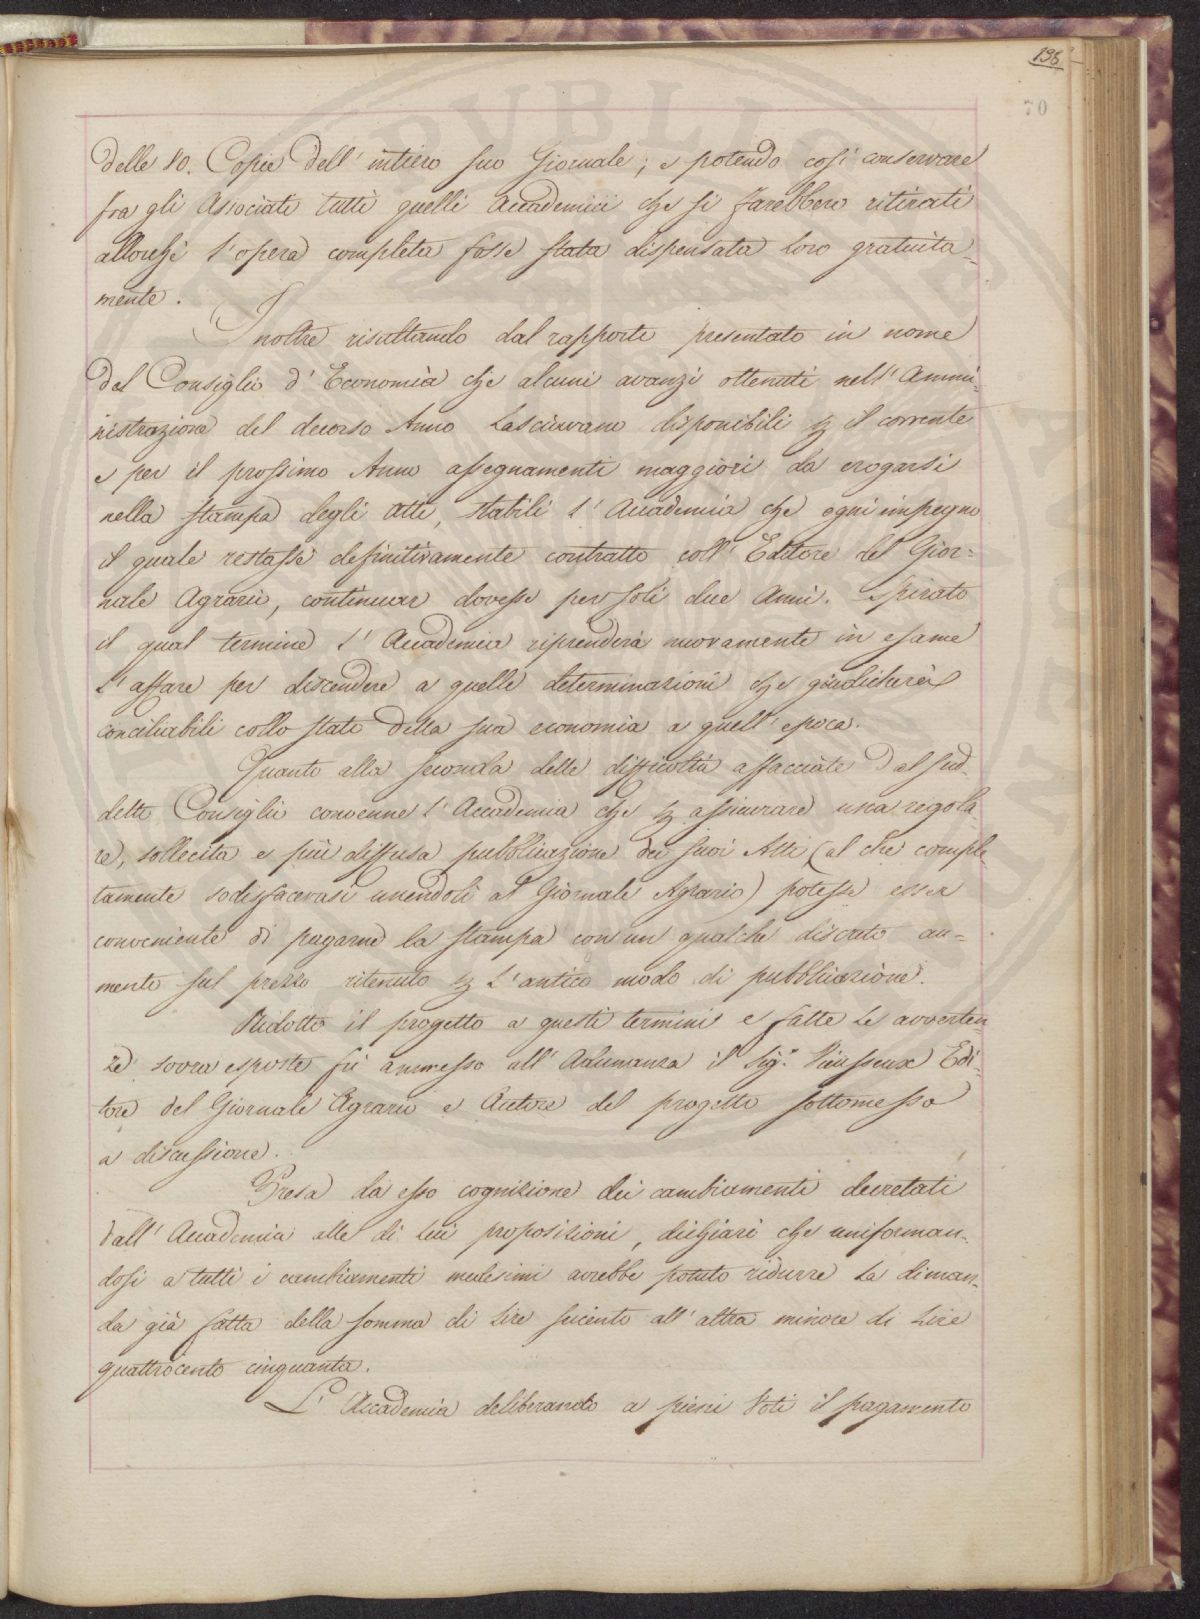 195
70
delle 80. Copie dell' intiero suo Giornale; e potendo così conservare
fra gli Associati tutti quelli Accademici che si sarebbero ritirati
allorchè l'opera completa fosse stata dispensata loro gratuita-
mente.
Inoltre risultando dal rapporto presentato in nome
del Consiglio d' Economia che alcuni avanzi ottenuti nell' Ammi-
nistrazione del decorso Anno lasciavano disponibili p il corrente
e per il prossimo Anno assegnamenti maggiori da erogarsi
nella stampa degli Atti, stabilì l' Accademia che ogni impegno
il quale restasse definitivamente contratto coll' Editore del Gior-
nale Agrario, continuar dovesse per soli due Anni. Spirato
il qual termine l' Accademia riprenderà nuovamente in esame
l' affare per discendere a quelle determinazioni che giudicherà
conciliabili collo stato della sua economia a quell' epoca.
Quanto alla seconda delle difficoltà affacciate dal sud-
detto Consiglio convenne l' Accademia che p assicurare una regola
re, sollecita e più diffusa pubblicazione dei suoi Atti (al che comple
tamente sodisfacevasi unendoli al Giornale Agrario) potesse esser
conveniente di pagarne la stampa con un qualche discreto au-
mento sul prezzo ritenuto p l' antico modo di pubblicazione.
Ridotto il progetto a questi termini e fatte le avverten
ze sovra esposte fù ammesso all' Adunanza il Sig.r Vieusseux Edi-
tore del Giornale Agrario e Autore del progetto sottomesso
a discussione.
Presa da esso cognizione dei cambiamenti decretati
dall' Accademia alle di lui proposizioni, dichiarì che uniforman-
dosi a tutti i cambiamenti medesimi avrebbe potuto ridurre la diman-
da già fatta della somma di Lire seicento all' altra minore di Lire
quattrocento cinquanta.
L' Accademia deliberando a pieni Voti il pagamento